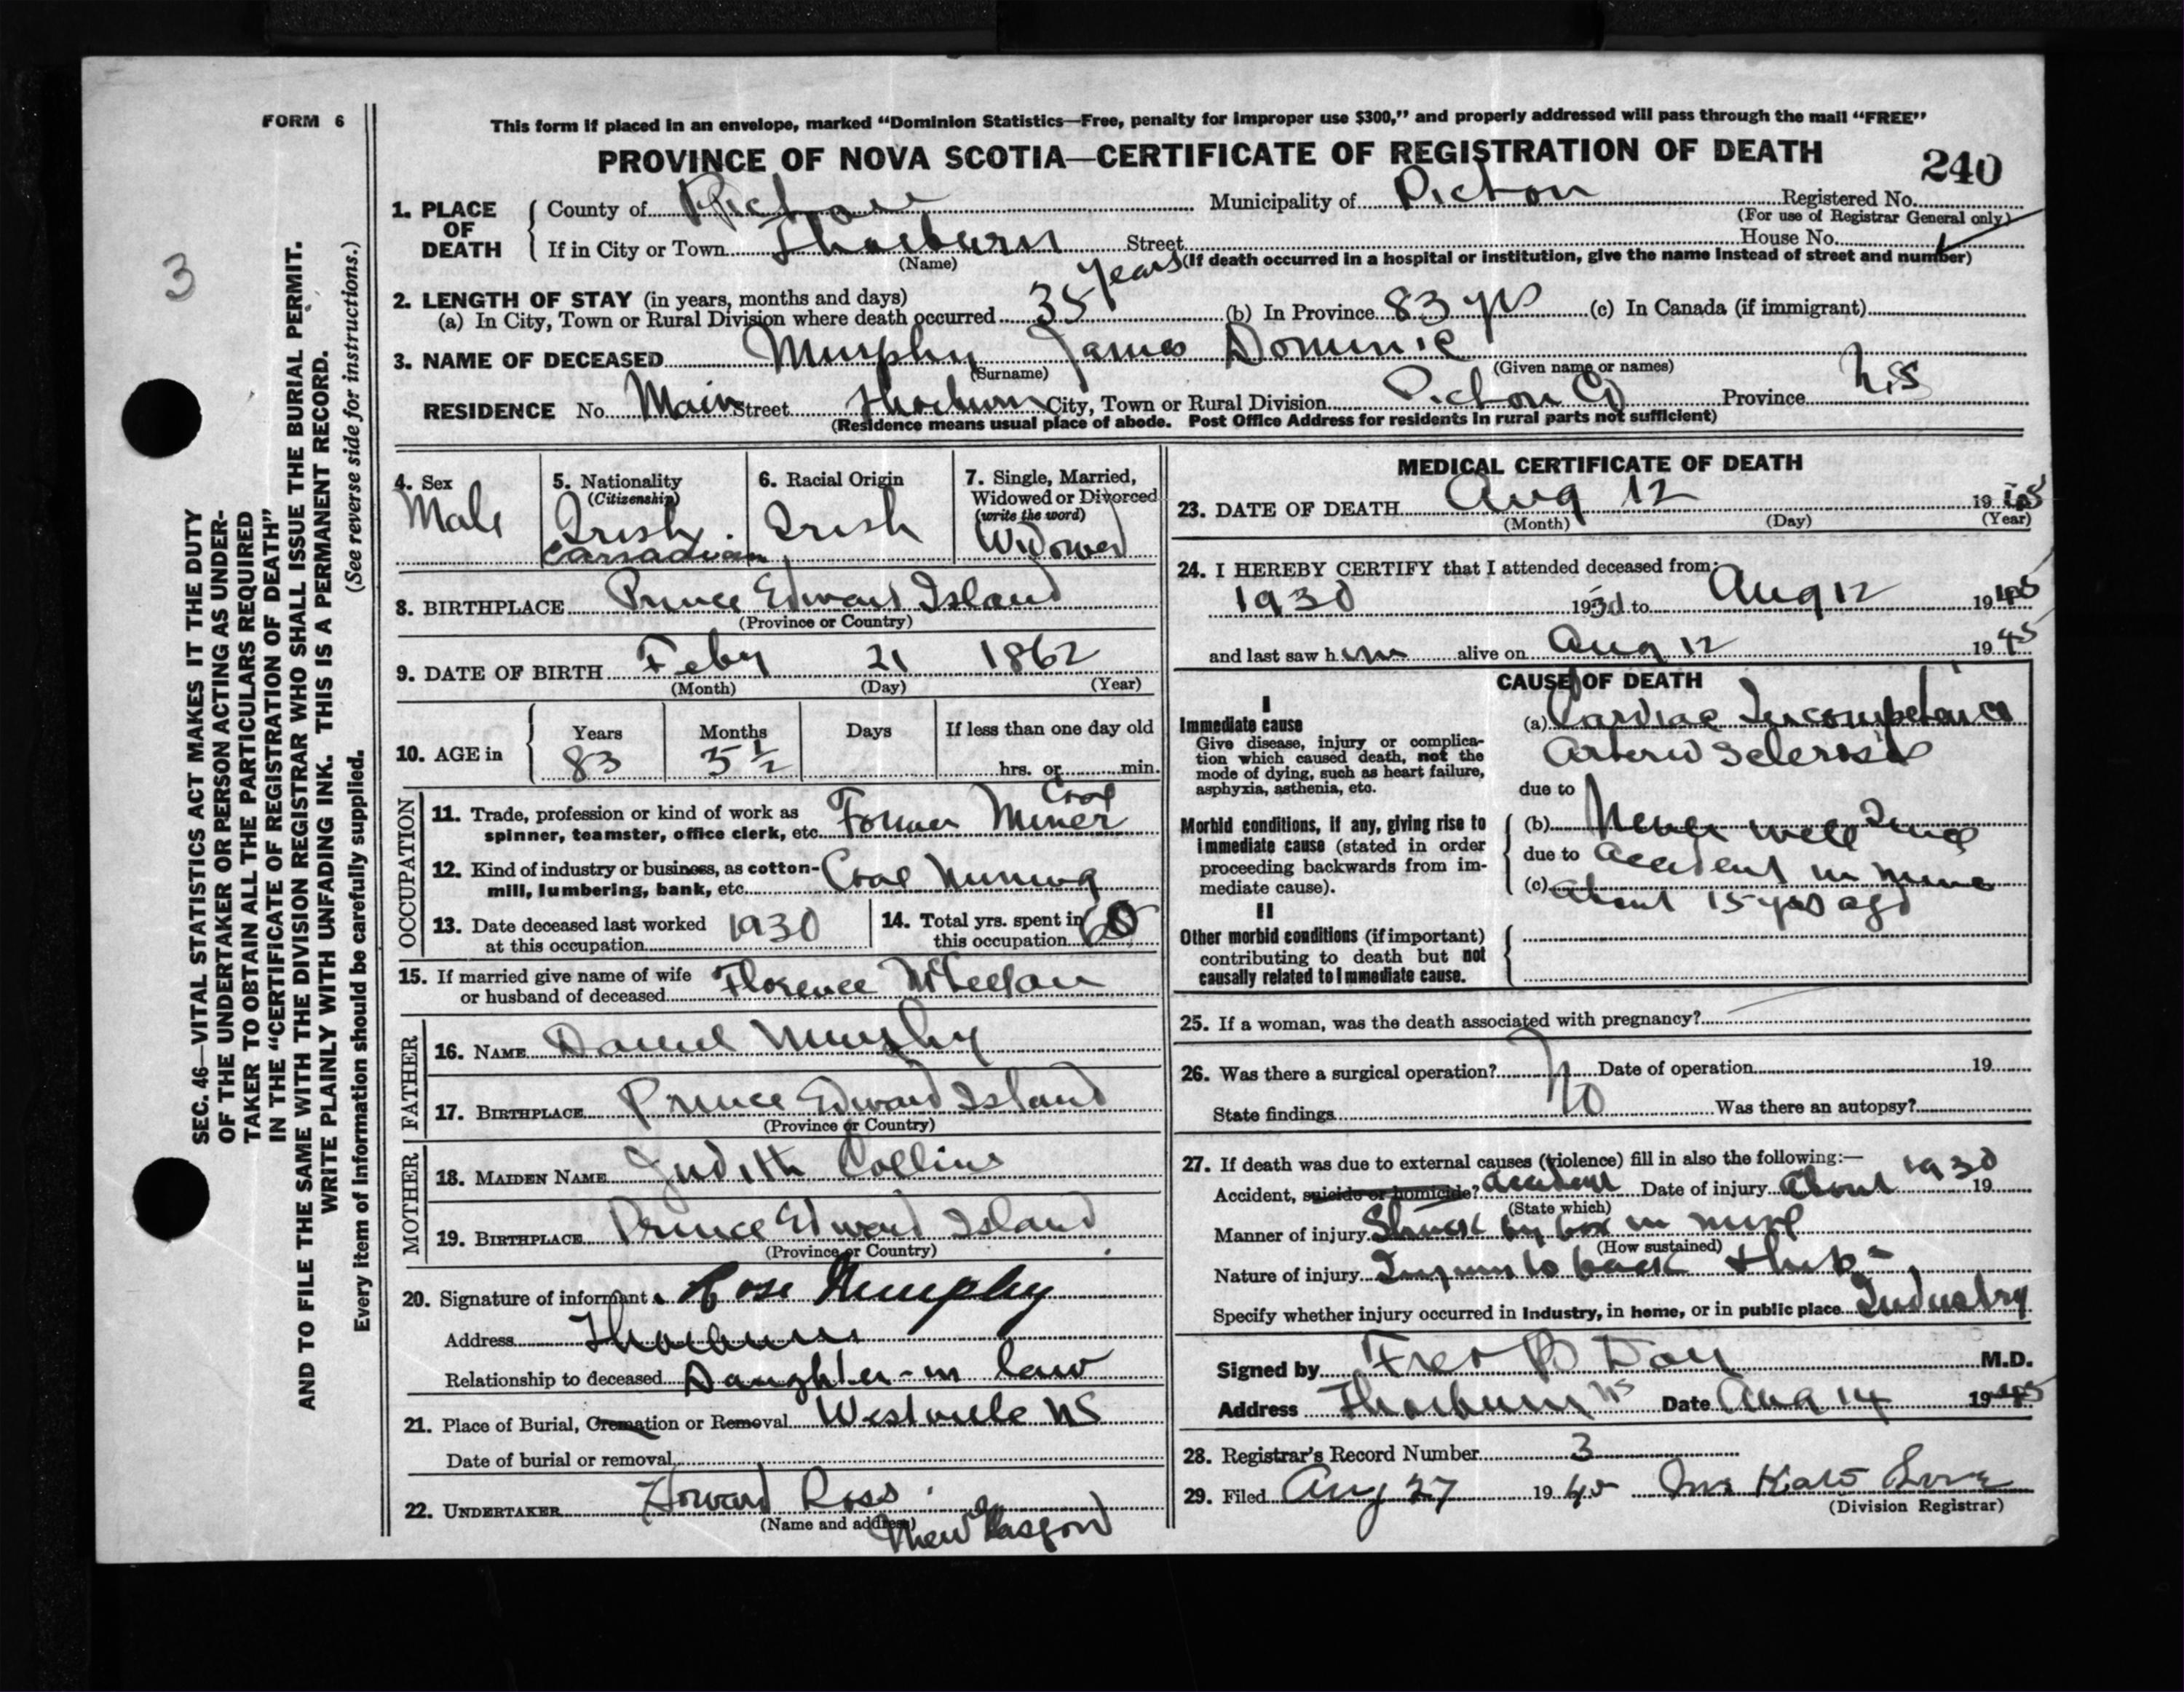 FORM 6
This form if placed in an envelope, marked “Dominion Statistics—Free, penalty for improper use $300,” and properly addressed will pass through the mail “FREE”
PROVINCE OF NOVA SCOTIA—CERTIFICATE OF REGISTRATION OF DEATH
240
1. PLACE OF DEATH
County of Pictou Municipality of Pictou Registered No.
(For use of Registrar General only)
If in City or Town Thorburn Street House No.
(Name) (If death occurred in a hospital or institution, give the name instead of street and number)
2. LENGTH OF STAY (in years, months and days)
(a) In City, Town or Rural Division where death occurred 35 years (b) In Province 83 yrs (c) In Canada (if immigrant)
3. NAME OF DECEASED Murphy James Dominic
(Surname) (Given name or names)
RESIDENCE No. Main Street Thorburn City, Town or Rural Division Pictou Co Province N.S
(Residence means usual place of abode. Post Office Address for residents in rural parts not sufficient)
4. Sex Male
5. Nationality (Citizenship) Irish Canadian
6. Racial Origin Irish
7. Single, Married, Widowed or Divorced (write the word) Widower
8. BIRTHPLACE Prince Edward Island
(Province or Country)
9. DATE OF BIRTH Feby 21 1862
(Month) (Day) (Year)
10. AGE in
Years Months Days If less than one day old
83 5½ hrs. or min.
OCCUPATION
11. Trade, profession or kind of work as spinner, teamster, office clerk, etc. Former Coal Miner
12. Kind of industry or business, as cotton-mill, lumbering, bank, etc. Coal Mining
13. Date deceased last worked at this occupation 1930
14. Total yrs. spent in this occupation 60
15. If married give name of wife or husband of deceased Florence
FATHER
16. NAME Daniel Murphy
17. BIRTHPLACE Prince Edward Island
(Province or Country)
MOTHER
18. MAIDEN NAME Judith Collins
19. BIRTHPLACE Prince Edward Island
(Province or Country)
20. Signature of informant Rose Murphy
Address Thorburn
Relationship to deceased Daughter-in law
21. Place of Burial, Cremation or Removal Westville NS
Date of burial or removal
22. UNDERTAKER Howard Ross
(Name and address) New Glasgow
MEDICAL CERTIFICATE OF DEATH
23. DATE OF DEATH Aug 12 1945
(Month) (Day) (Year)
24. I HEREBY CERTIFY that I attended deceased from:
1930 1930 to Aug 12 1945
and last saw him alive on Aug 12 1945
CAUSE OF DEATH
I
Immediate cause
Give disease, injury or complication which caused death, not the mode of dying, such as heart failure, asphyxia, asthenia, etc.
(a) Cardiac Incompetence
Arterio Sclerosis
due to
Morbid conditions, if any, giving rise to immediate cause (stated in order proceeding backwards from immediate cause).
(b) Never well since
due to accident in mine
(c) about 15 yrs ago
II
Other morbid conditions (if important) contributing to death but not causally related to immediate cause.
25. If a woman, was the death associated with pregnancy?
26. Was there a surgical operation? No Date of operation 19
State findings Was there an autopsy?
27. If death was due to external causes (violence) fill in also the following:—
Accident, suicide or homicide? Accident Date of injury About 1930 19
(State which)
Manner of injury Struck by box in mine
(How sustained)
Nature of injury Injury to back & hips
Specify whether injury occurred in industry, in home, or in public place Industry
Signed by Fred B Day M.D.
Address Thorburn NS Date Aug 14 1945
28. Registrar's Record Number 3
29. Filed Aug 27 1945 Mrs Kate
(Division Registrar)
3
SEC. 46—VITAL STATISTICS ACT MAKES IT THE DUTY
OF THE UNDERTAKER OR PERSON ACTING AS UNDER-
TAKER TO OBTAIN ALL THE PARTICULARS REQUIRED
IN THE “CERTIFICATE OF REGISTRATION OF DEATH”
AND TO FILE THE SAME WITH THE DIVISION REGISTRAR WHO SHALL ISSUE THE BURIAL PERMIT.
WRITE PLAINLY WITH UNFADING INK. THIS IS A PERMANENT RECORD.
Every item of information should be carefully supplied. (See reverse side for instructions.)